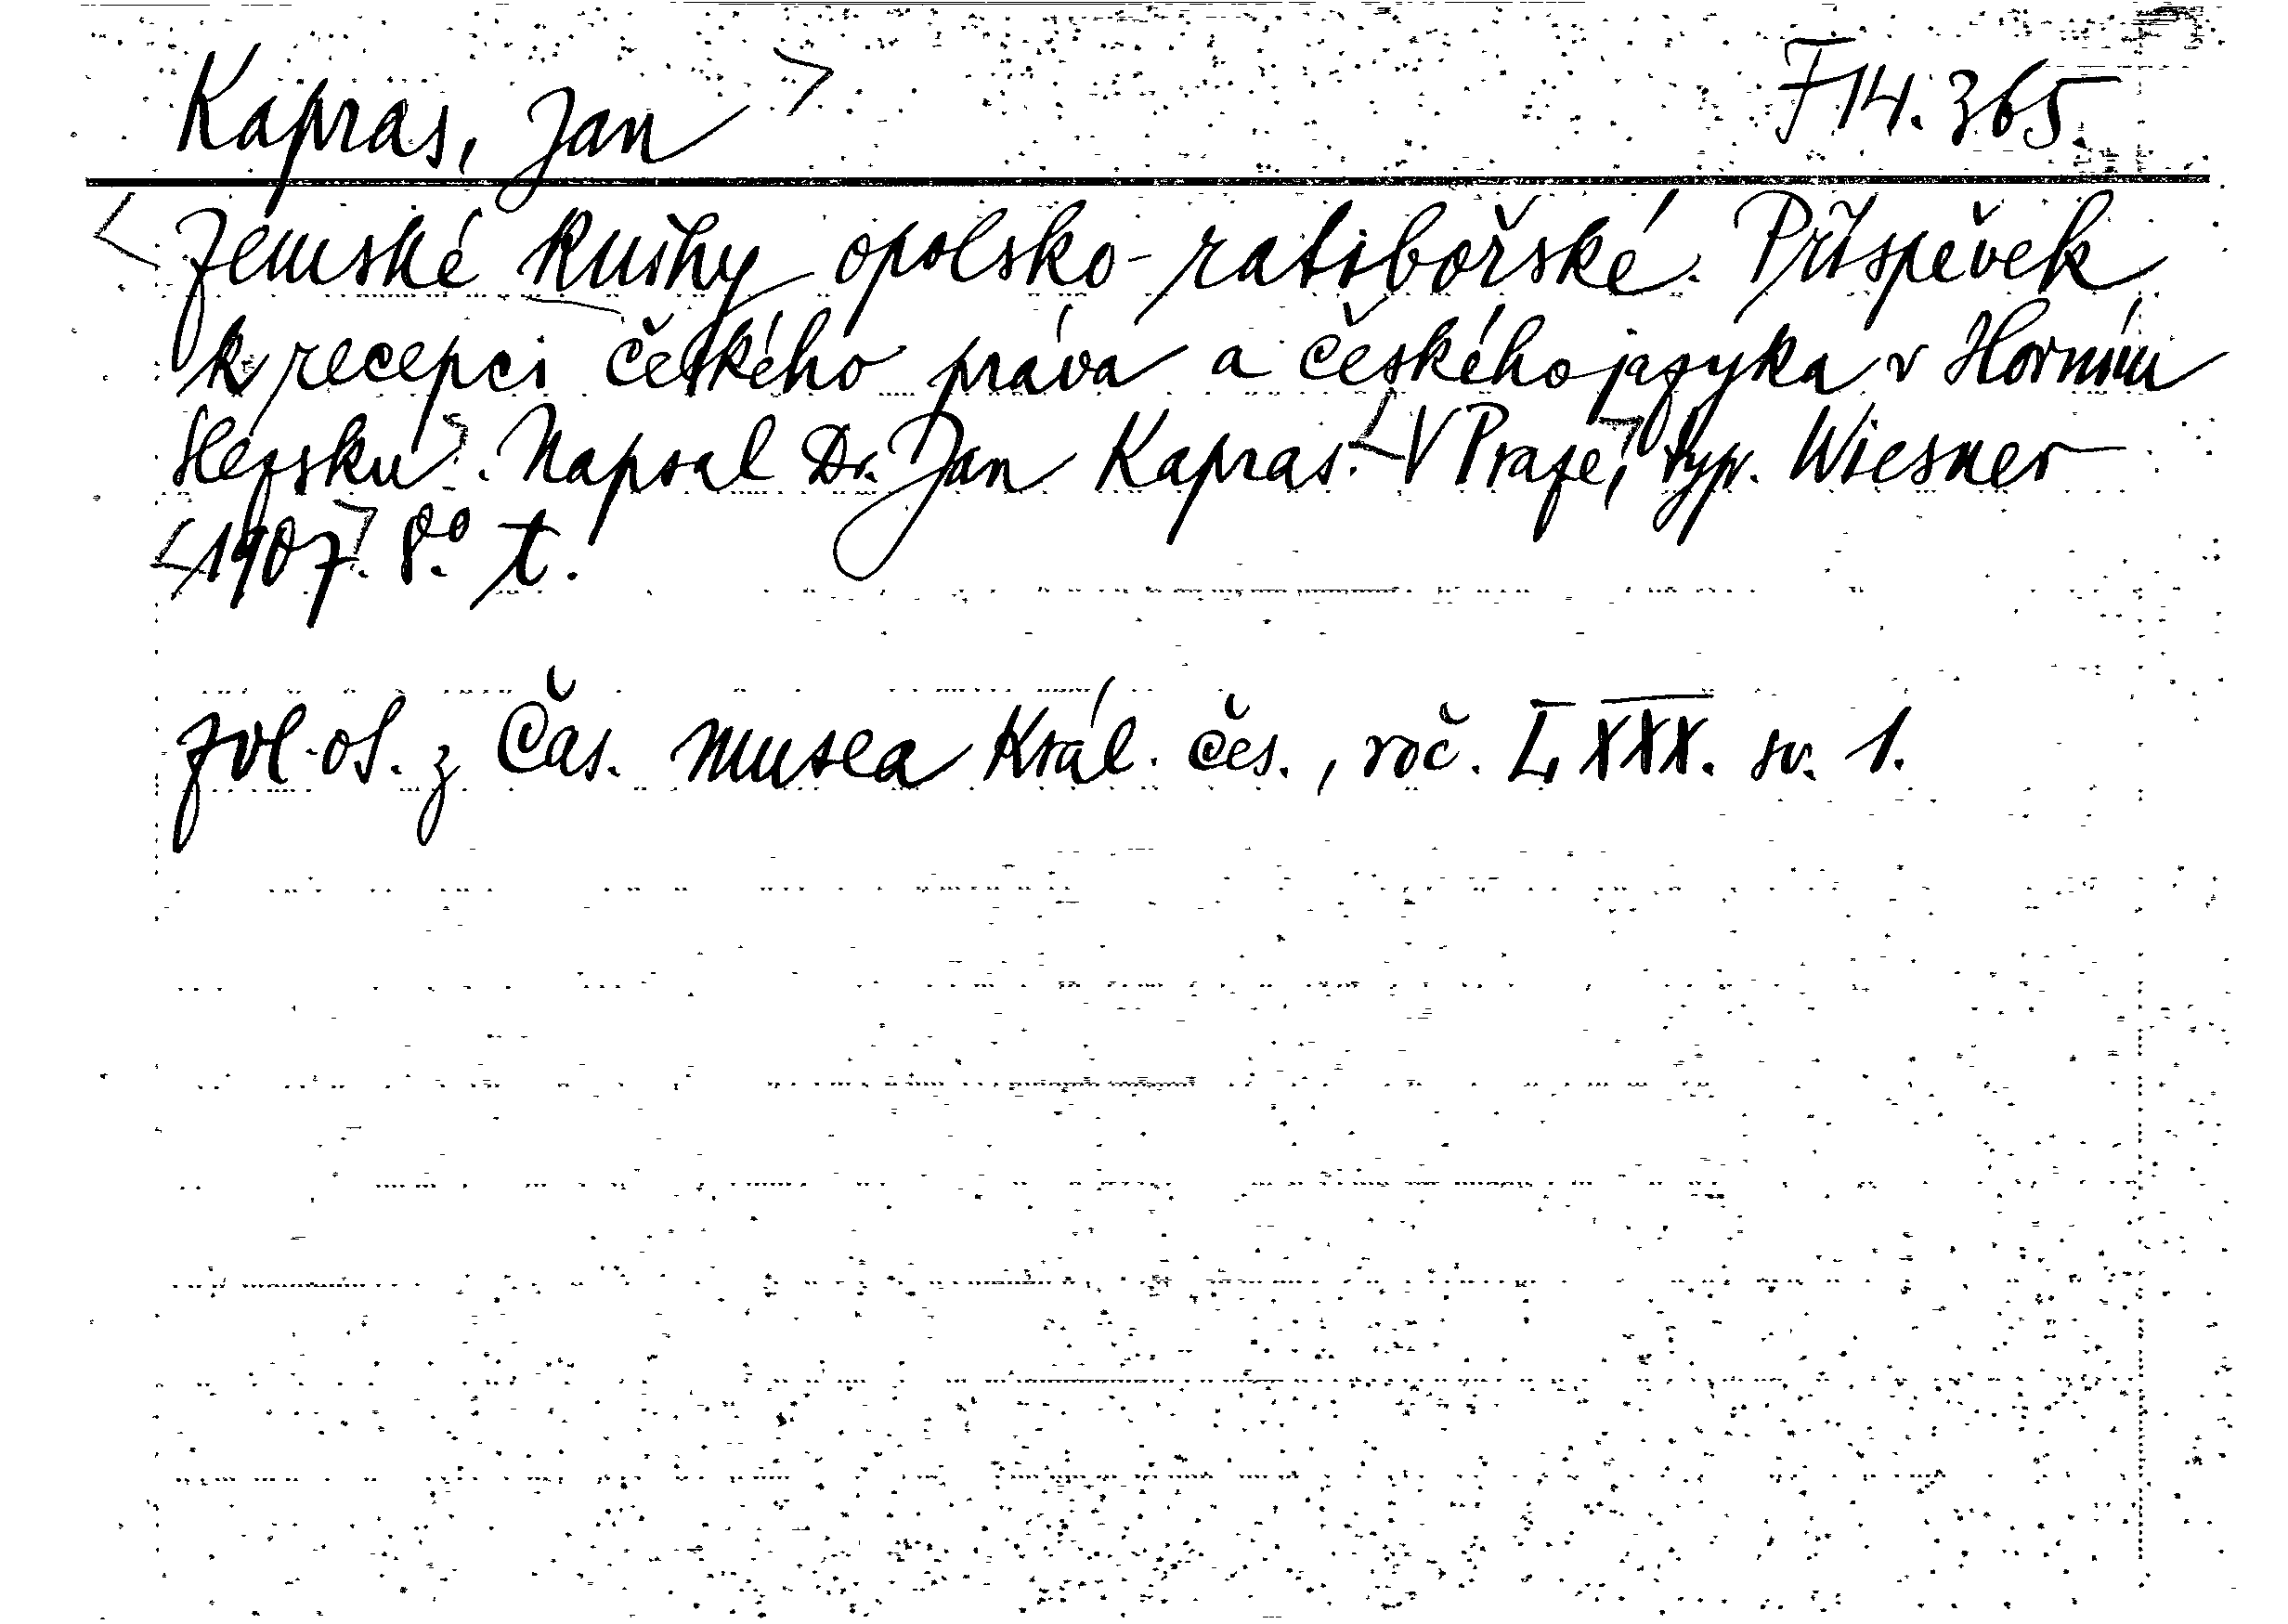 Kapras, Jan F 14.365.
Zemské knihy opolsko-ratibořské. Příspěvek
k recepci českého práva a českého jazyka v Horním
Slezsku. Napsal Dr. Jan Kapras. V Praze, typ. Wiesner
1907. 8.° t.
Zvl. ot. z Čas. musea Král. čes., roč. LXXX. sv. 1.